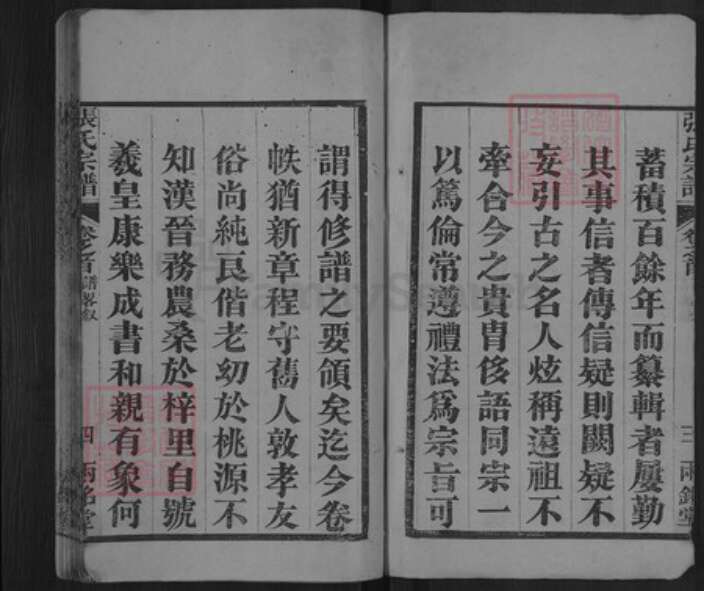 張氏宗譜
三 兩銘堂
蓄積百餘年而纂輯者屢勤
其事信者傳信疑則闕疑不
妄引古之名人炫稱遠祖不
牽合今之貴胄侈語同宗一
以篤倫常遵禮法爲宗旨可
謂得修譜之要領矣迄今卷
帙猶新章程守舊人敦孝友
俗尚純良偕老幼於桃源不
知漢晉務農桑於梓里自號
羲皇康樂成書和親有象何
張氏宗譜
卷之首 譜畧叙
四 兩銘堂